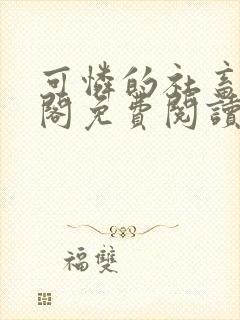 可憐的社畜
閣免費閱讀
福雙